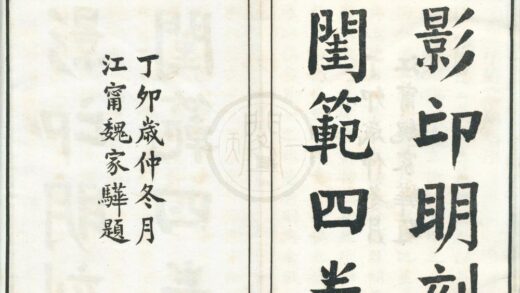 影印明刻
閨範四卷
丁卯歲仲冬月
江甯魏家驊題